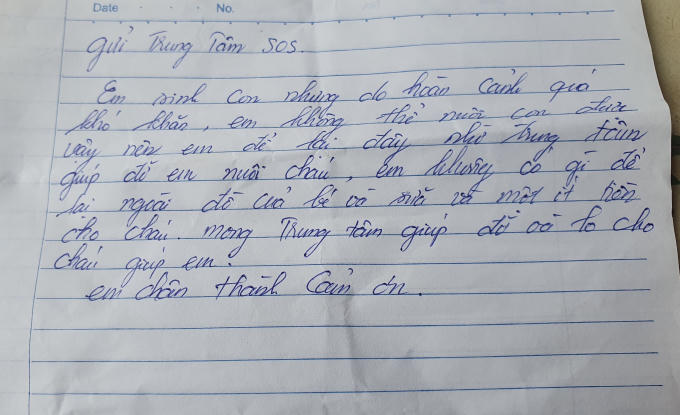 Date No.
gửi Trung Tâm SOS.
Em sinh con nhưng do hoàn cảnh quá
khó khăn, em không thể nuôi con được
vậy nên em để lại đây nhờ Trung tâm
giúp đỡ em nuôi cháu, em không có gì để
lại ngoài đồ của bé và sữa và một ít tiền
cho cháu. mong Trung tâm giúp đỡ và lo cho
cháu giúp em.
em chân thành Cảm ơn.